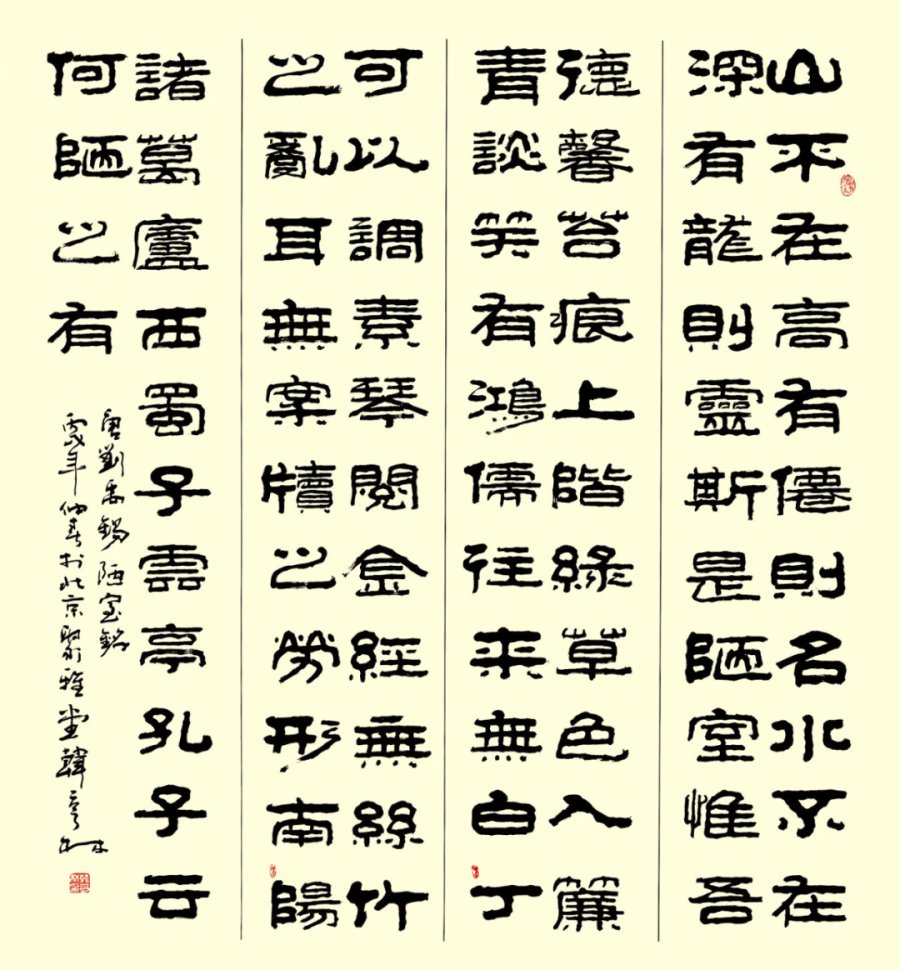 山不在高有僊則名水不在
深有龍則靈斯是陋室惟吾
德馨苔痕上階緑草色入簾
青談笑有鴻儒往來無白丁
可以調素琴閱金經無絲竹
之亂耳無案牘之勞形南陽
諸葛廬西蜀子雲亭孔子云
何陋之有
唐劉禹錫陋室銘
丙戌年仲春於北京聚雅堂韓亨林